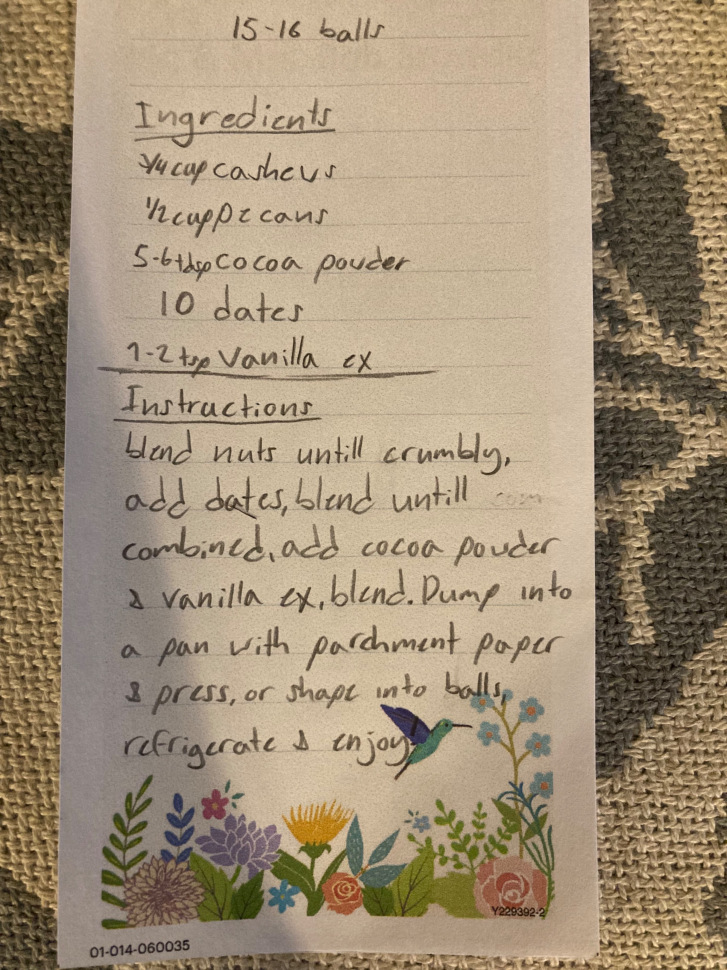 15-16 balls
Ingredients
1/4 cup cashews
1/2 cup pecans
5-6 tbsp cocoa powder
10 dates
1-2 tsp vanilla ex
Instructions
blend nuts untill crumbly,
add dates, blend untill com
combined, add cocoa powder
& vanilla ex, blend. Dump into
a pan with parchment paper
& press, or shape into balls,
refrigerate & enjoy
Y229392-2
01-014-060035